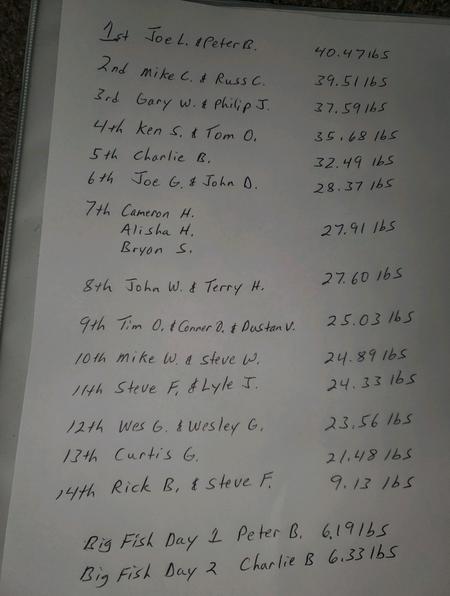 1st Joe L. & Peter B. 40.47 lbs
2nd Mike C. & Russ C. 39.51 lbs
3rd Gary W. & Philip J. 37.59 lbs
4th Ken S. & Tom O. 35.68 lbs
5th Charlie B. 32.49 lbs
6th Joe G. & John D. 28.37 lbs
7th Cameron H.
Alisha H. 27.91 lbs
Bryon S.
8th John W. & Terry H. 27.60 lbs
9th Tim O. & Conner O. & Dustan V. 25.03 lbs
10th Mike W. & Steve W. 24.89 lbs
11th Steve F. & Lyle J. 24.33 lbs
12th Wes G. & Wesley G. 23.56 lbs
13th Curtis G. 21.48 lbs
14th Rick B. & Steve F. 9.13 lbs
Big Fish Day 1 Peter B. 6.19 lbs
Big Fish Day 2 Charlie B 6.33 lbs